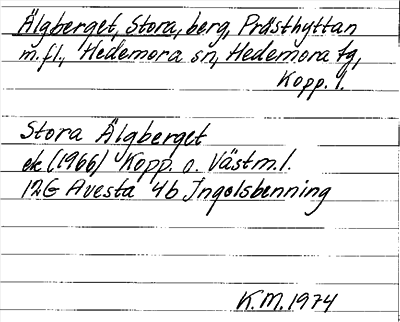 Älgberget, Stora, berg, Prästhyttan
m.fl., Hedemora sn, Hedemora tg,
Kopp. l.
Stora Älgberget
ek (1966) Kopp. o. Västm.l.
12G Avesta 4b Ingolsbenning
K.M. 1974